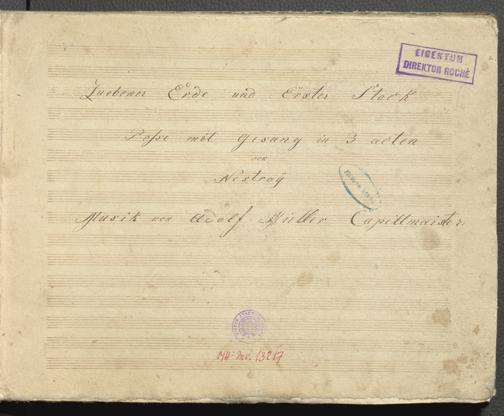 EIGENTUM
DIREKTOR ROCHÉ
Zuebener Erde und Erster Stock
Posse mit Gesang in 3 acten
von
Nestroÿ
Musik von Adolf Müller Capellmeister.
MH-Inv. 13217